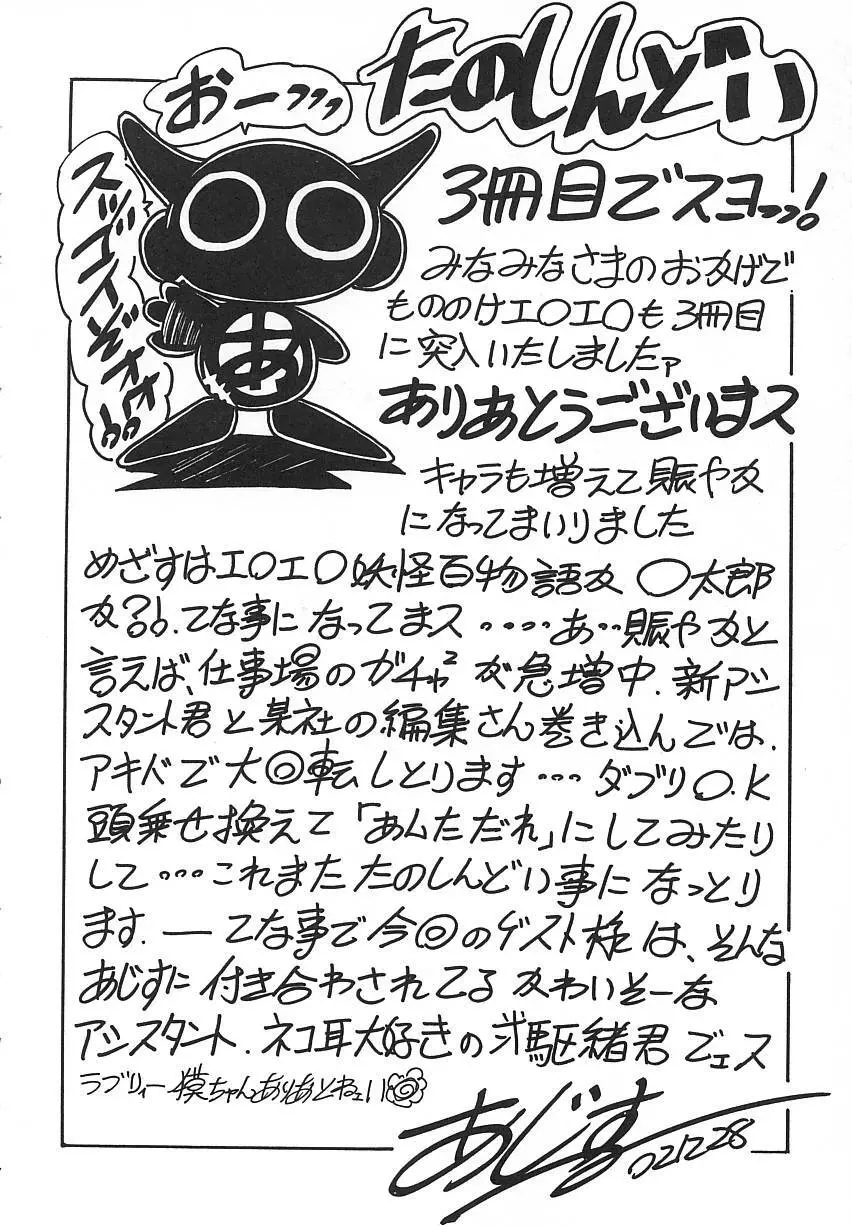 たのしんどい
おーっっっ
スッゴイぞオオ!!
あ
3冊目でスヨっっ!
みなみなさまのおかげで
もののけエ〇エ〇も3冊目
に突入いたしましたァ
ありあとうございまス
キャラも増えて賑やか
になってまいりました
めざすはエ〇エ〇妖怪百物語か 〇太郎
か?!.てな事になってまス・・・・あ・・賑やかと
言えば、仕事場のガチャ² が急増中.新アシ
スタント君と某社の編集さん巻き込んでは.
アキバで大◎転しとります・・・ダブリO.K
頭乗せ換えて「あんただれ」にしてみたり
して・・・これまた たのしんどい事になっとり
ます.―てな事で今◎のゲスト様は、そんな
あじすに付き合わされてる かわいそーな
アシスタント.ネコ耳大好きの 駆緒君でェス
ラブリィー 獏ちゃんありあとねェい
あじす 02.12.28